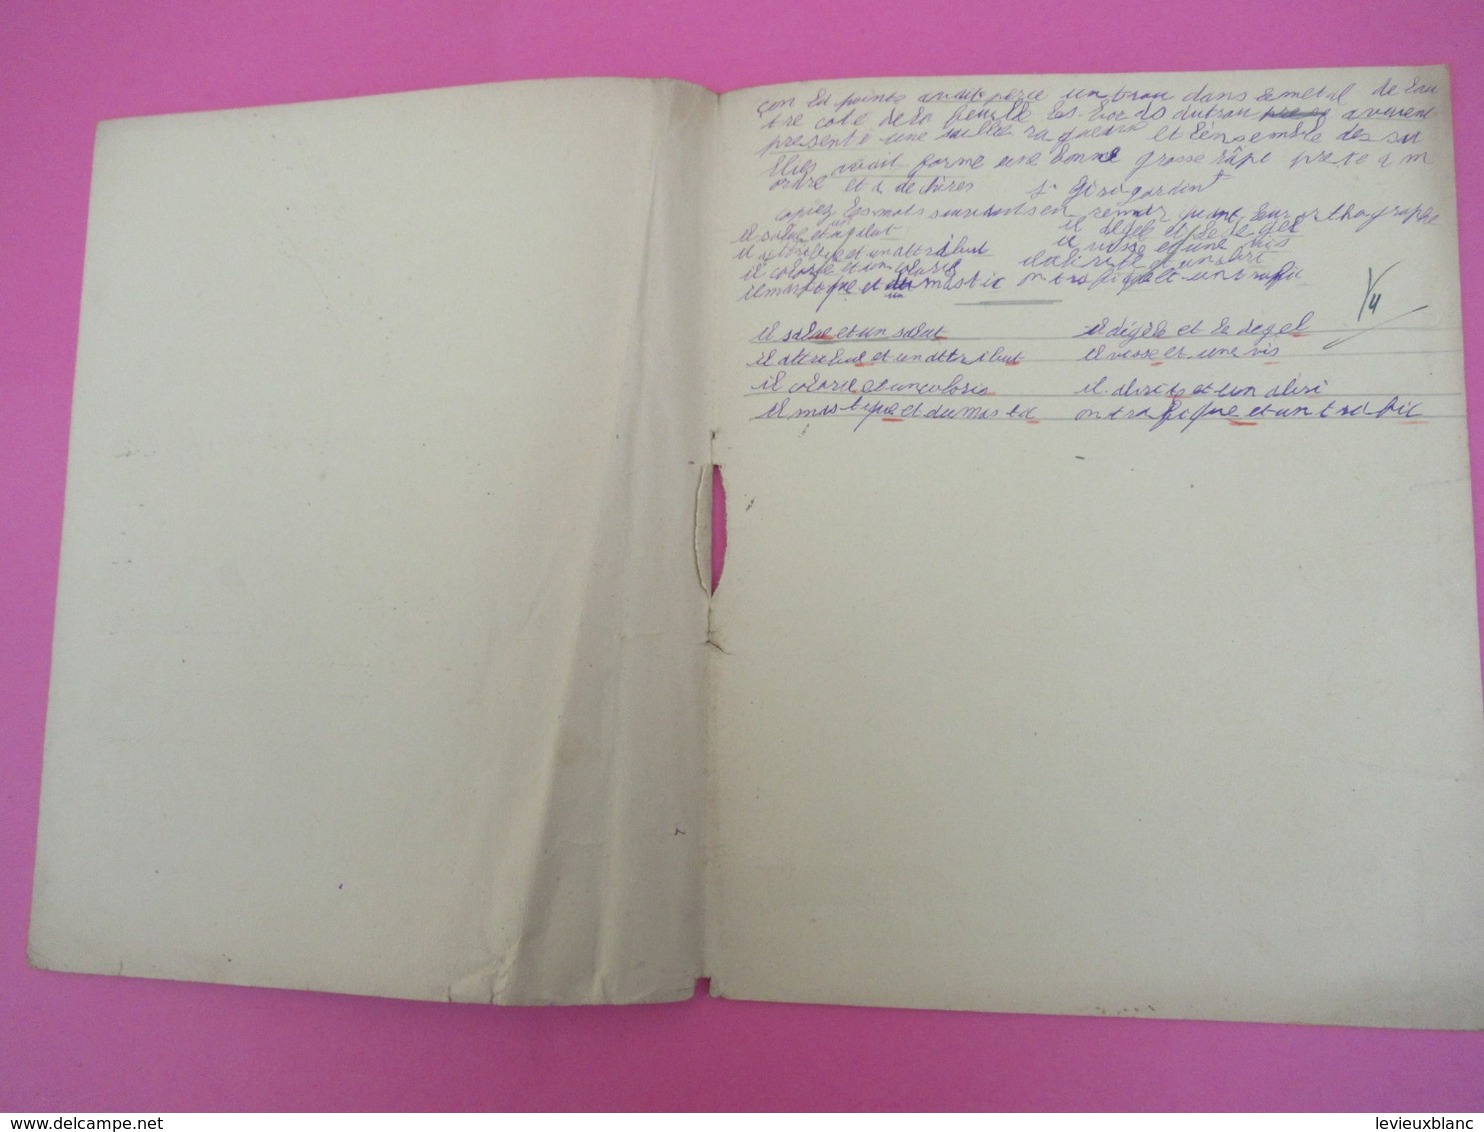 çon la pointe avait percé un trou dans le metal de lau
tre coté de la feuille les bords du trou avaient
presenté une saillie rugueuse et l'ensemble des sai
llies avait formé une bonne grosse râpe prete a m
ordre et a dechirer
copiez les mots suivants en remarquant leur orthographe
il salue et un salut il dégèle et le dégel
il attribue et un attribut il visse et une vis
il colorie et un coloris il abrite et un abri
il mastique et un mastic on trafique et un trafic
1/4
il salue et un salut il dégèle et le degel
il attribue et un attribut il visse et une vis
il colorie et un coloris il abrite et un abri
il mastique et du mastic on trafique et un trafic
levieuxblanc